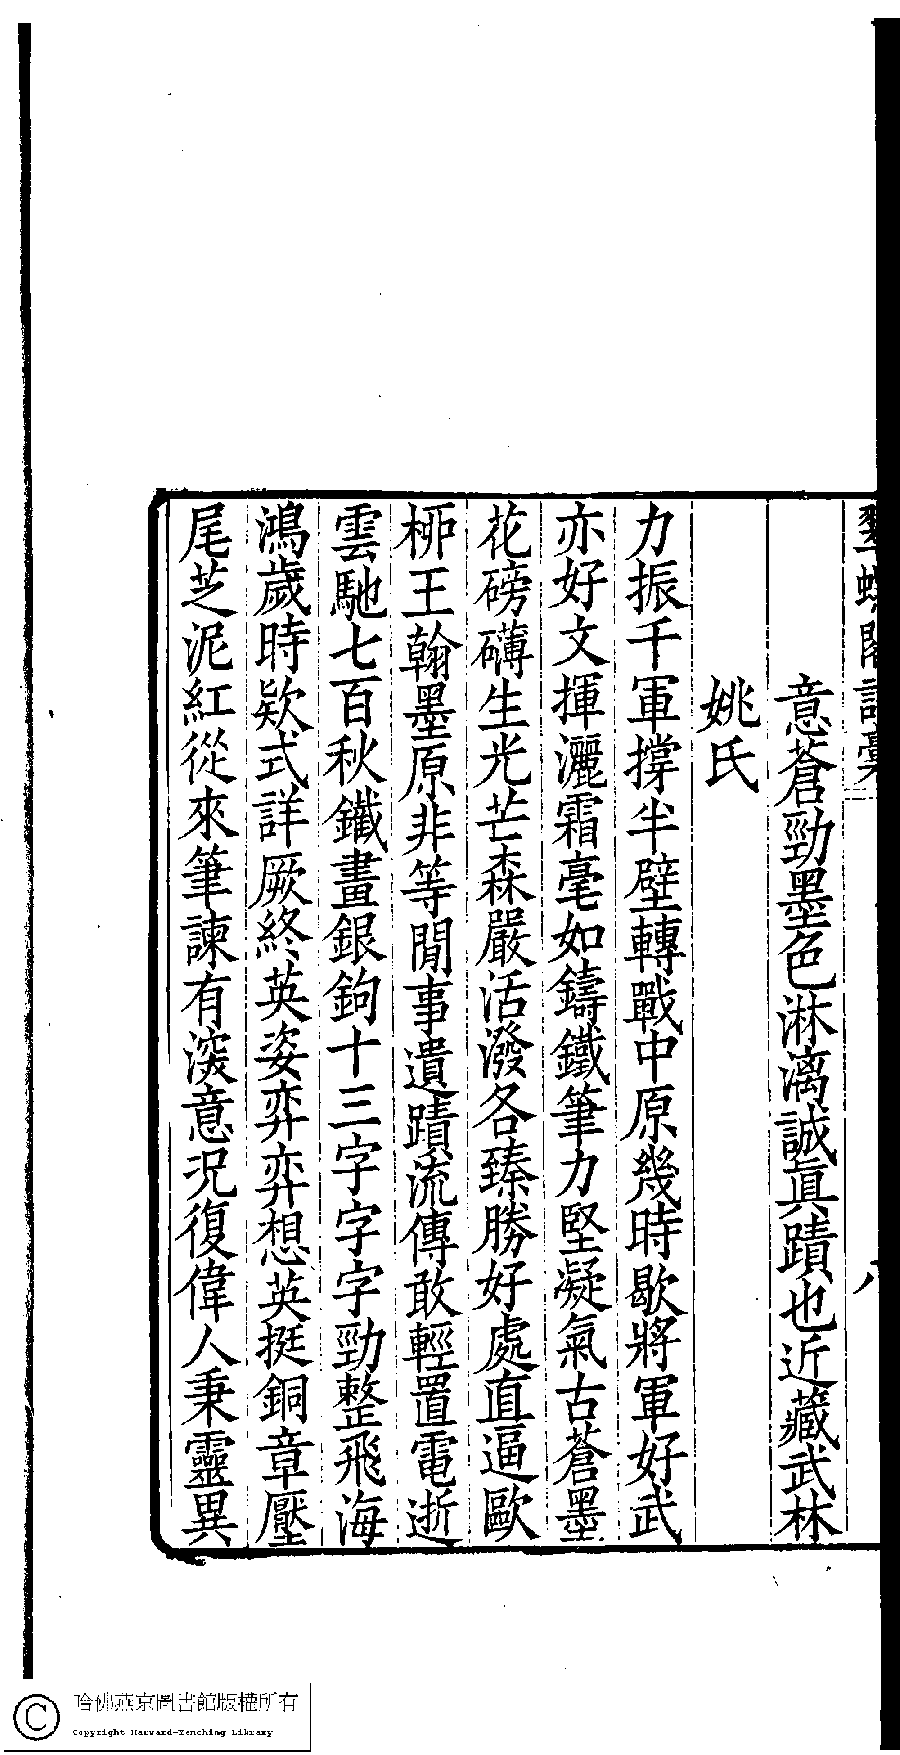 翠螺閣詩藁 八
意蒼勁墨色淋漓誠眞蹟也近藏武林
姚氏
力振千軍撐半壁轉戰中原幾時歇將軍好武
亦好文揮灑霜毫如鑄鐵筆力堅凝氣古蒼墨
花磅礴生光芒森嚴活潑各臻勝好處直逼歐
桺王翰墨原非等閒事遺蹟流傳敢輕置電逝
雲馳七百秋鐵畫銀鉤十三字字字勁整飛海
鴻歲時欵式詳厥終英姿弈弈想英挺銅章壓
尾芝泥紅從來筆諫有深意況復偉人秉靈異
哈佛燕京圖書館版權所有
Copyright Harvard-Yenching Library